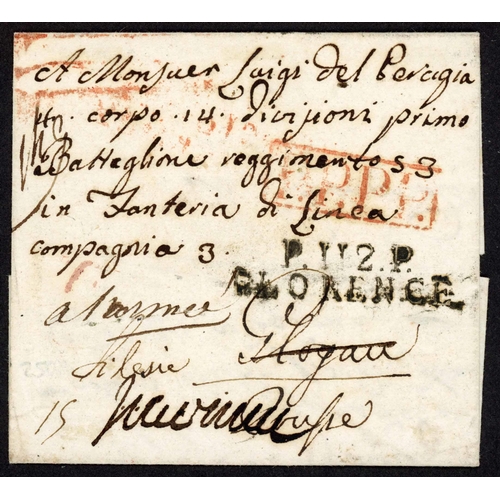 A Monsuer Luigi del Perugia
4. corpo. 14. divisioni primo
Battaglione reggimento 53
in Fanteria di Linea
P.P.P.P.
compagnia 3.
P.112.P.
FLORENCE
Silesie Glogau
15